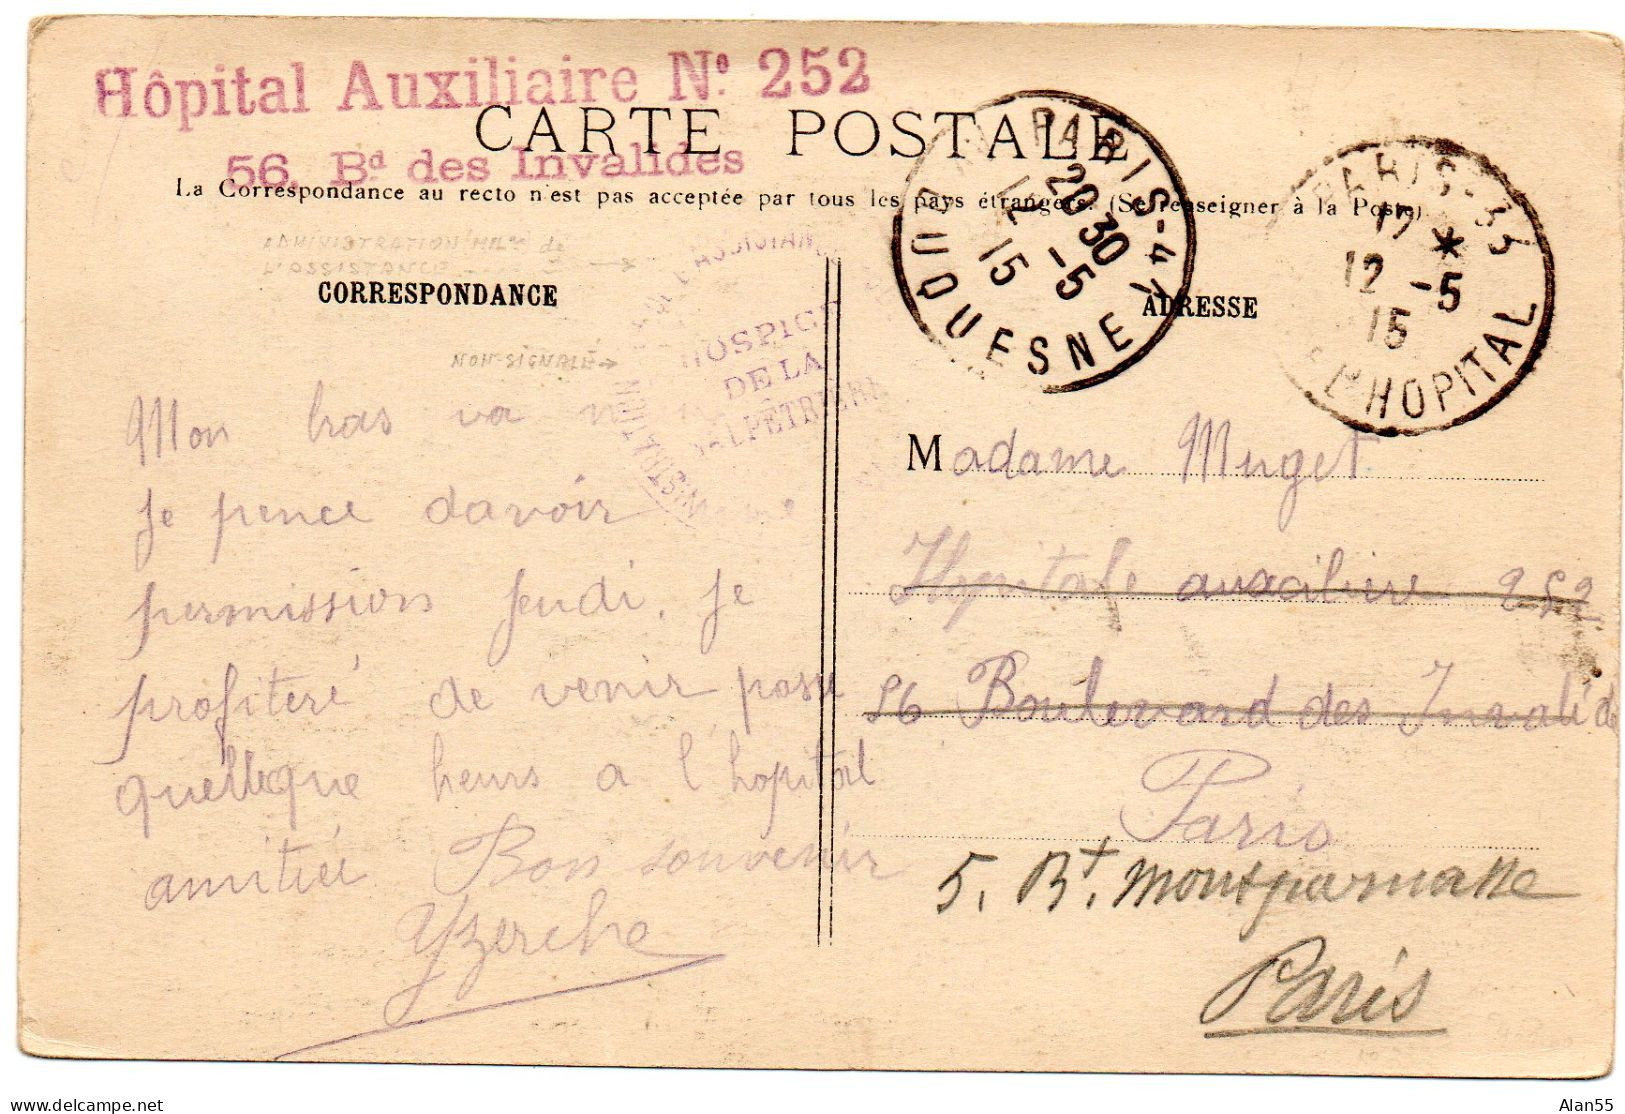 Hôpital Auxiliaire Nº 252
CARTE POSTALE
56, Bd des Invalides
La Correspondance au recto n'est pas acceptée par tous les pays étrangers. (Se renseigner à la Poste)
ADMINISTRATION MILre de
L'ASSISTANCE
CORRESPONDANCE
NON-SIGNALÉ →
HOSPICE
DE LA
SALPÊTRIÈRE
PARIS-47
20 30
12 -5
15
DUQUESNE
PARIS-33
17 *
12 -5
15
Bd L'HOPITAL
ADRESSE
Mon bras va
Je pence davoir
permission Jeudi. Je
profiteré de venir passe
quelleque heurs a l'hopital
amitiée Bon souvenir
Yzerche
Madame Muget
Hopitale auxciliere 252
56 Boulevard des Invalide
Paris
5. Bt. Montparnasse
Paris
Alan55